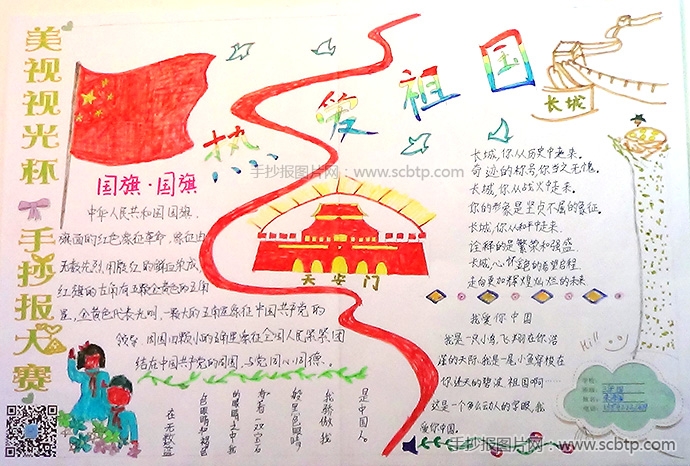 美视视光杯手抄报大赛
热爱祖国
国旗·国旗
中华人民共和国国旗,
旗面的红色象征革命,
红旗的左角有五颗金黄色的五角
星,金黄色代表光明,一颗大的五角星象征中国共产党的
领导,
结在中国共产党的周围,与党同心同德。
天安门
长城
长城,你从历史中走来。
奇迹的称号你当之无愧。
长城,你从战火中走来。
你的形象是坚贞不屈的象征。
长城,你从和平中走来。
诠释的是繁荣和强盛
长城,心怀金色的希望启程
走向更加辉煌灿烂的未来
我爱你中国
我是一只小鸟,飞翔在你浩
瀚的天际,我是一尾小鱼穿梭在
你迷人的碧波,祖国啊……
这是一个多么动人的字眼,我
爱你中国。
是中国人。
我骄傲我
般黑色眼睛
有着一双宝石
的眼睛之中我
色眼睛和褐色
在无数蓝
Hi!
手抄报图片网:www.scbtp.com
手抄报图片网:www.scbtp.com